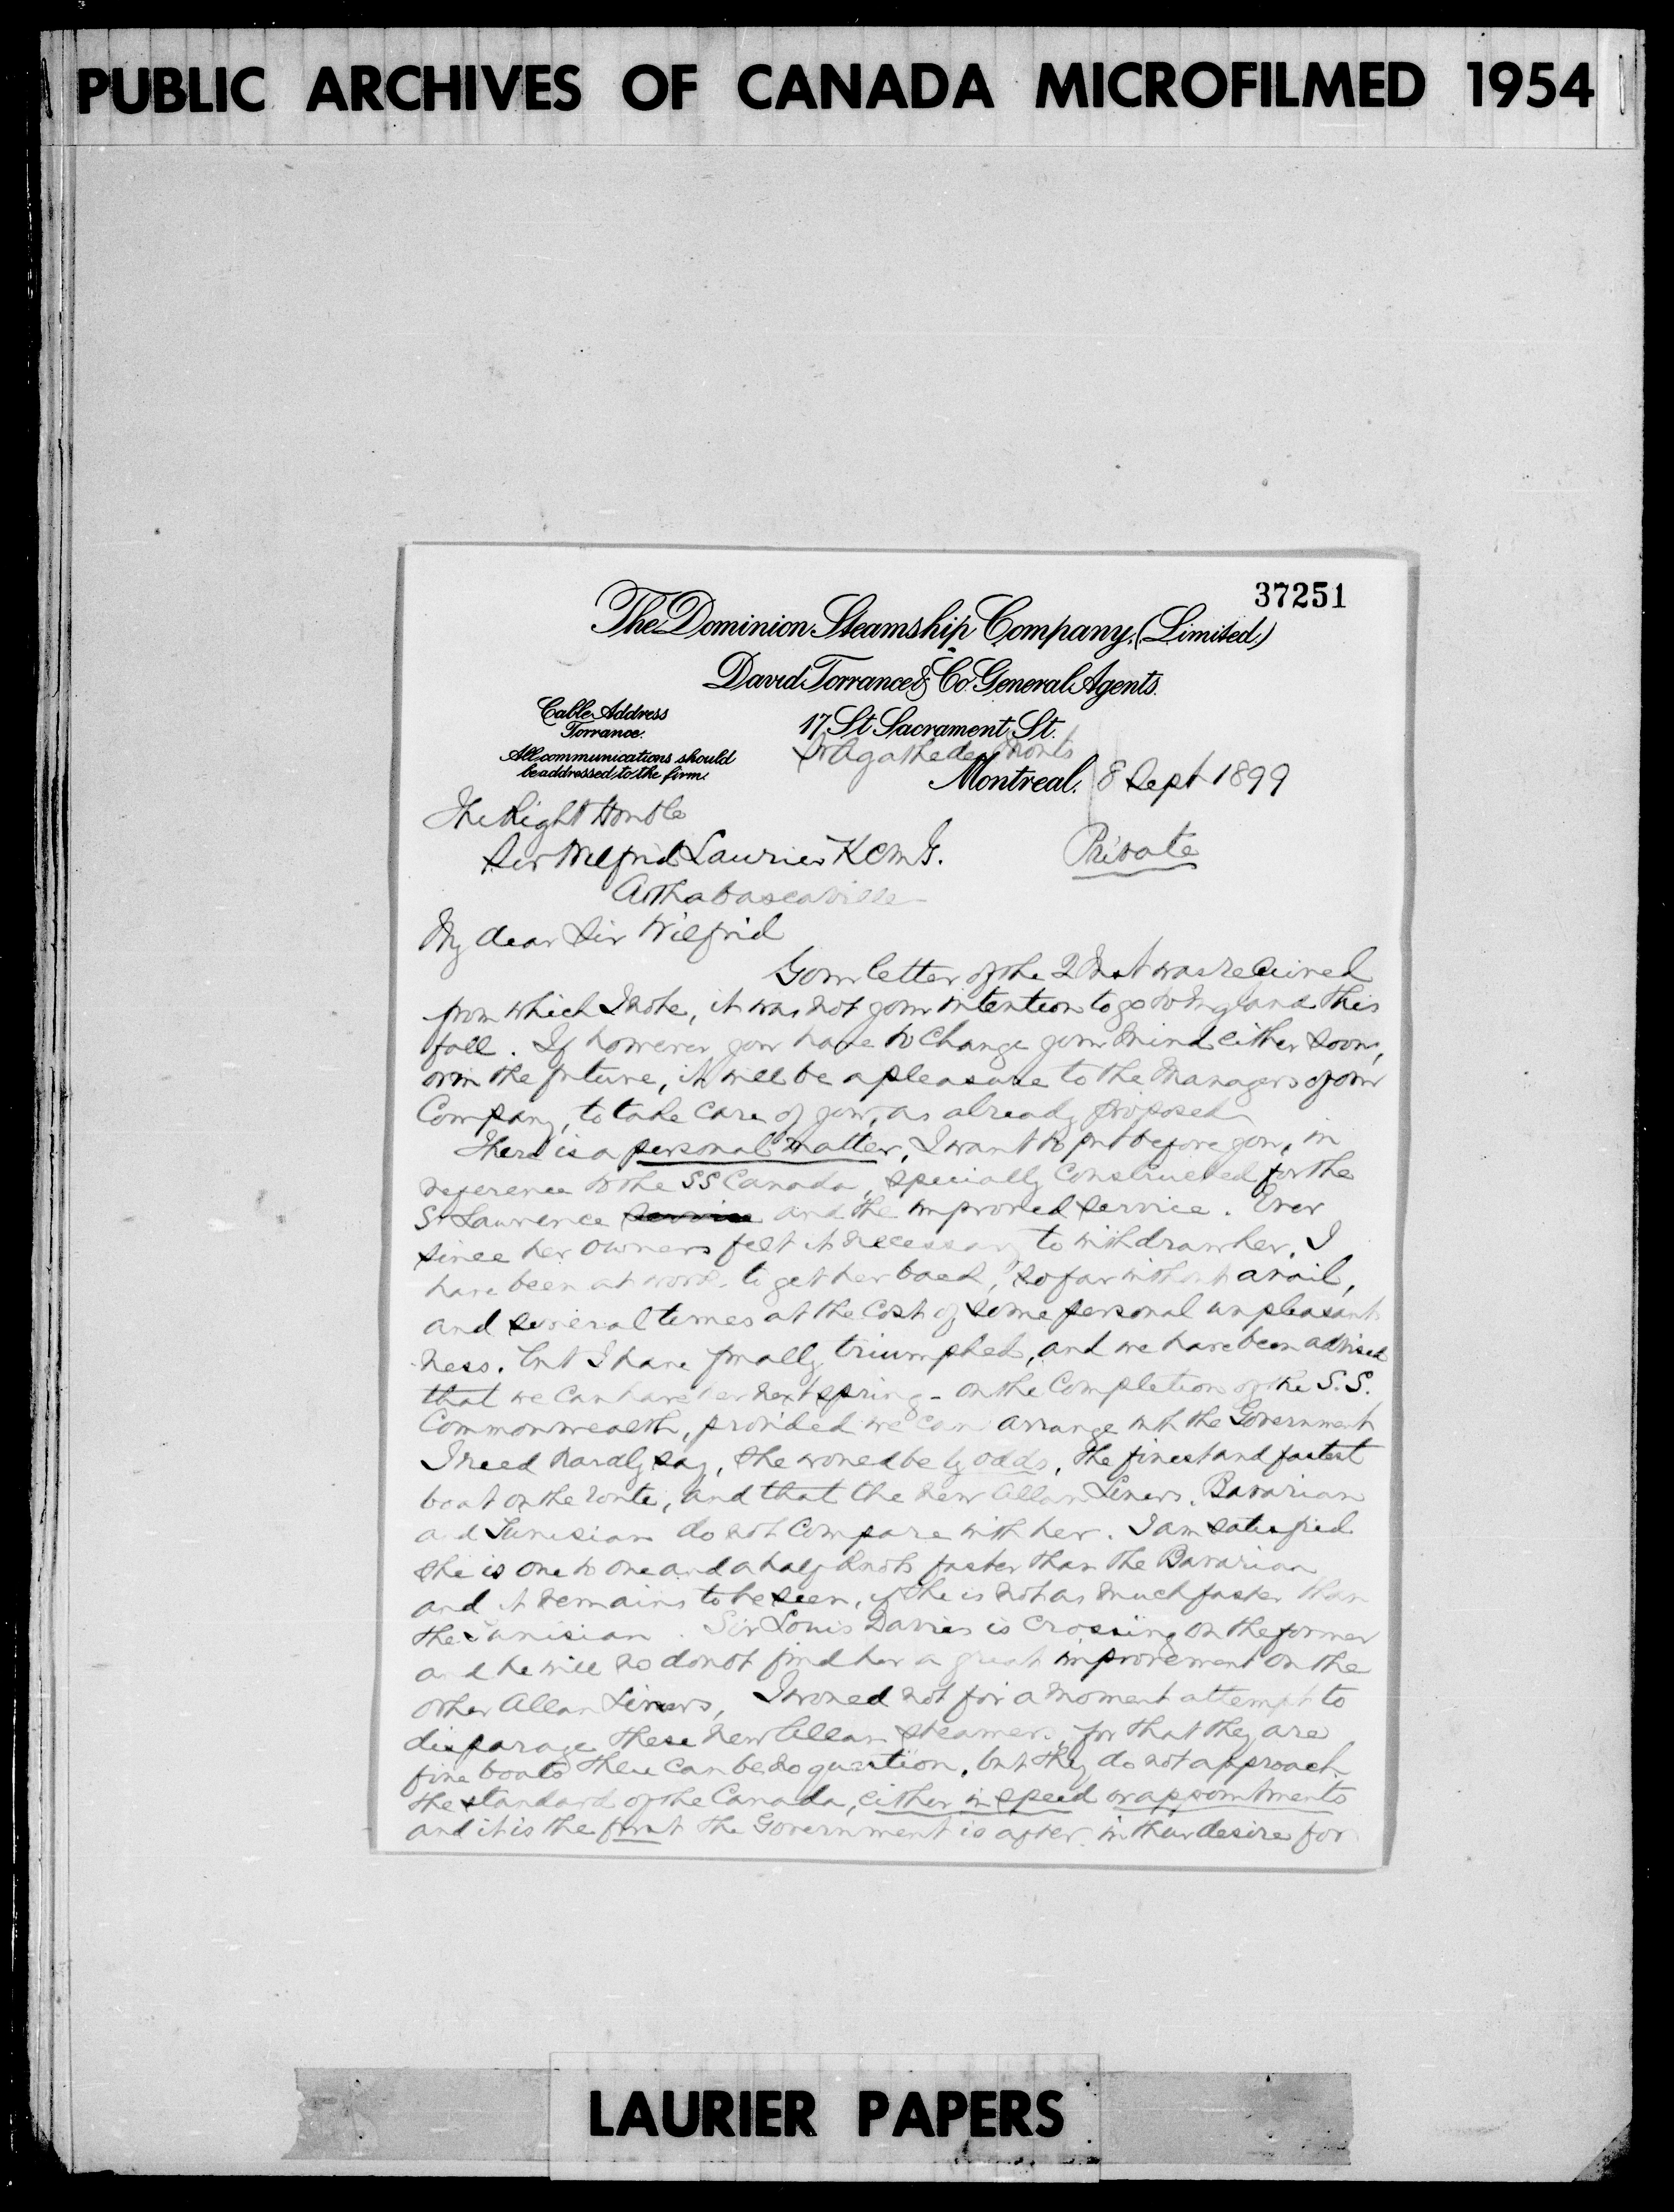 PUBLIC ARCHIVES OF CANADA MICROFILMED 1954
37251
The Dominion Steamship Company, (Limited)
David Torrance & Co. General Agents.
Cable Address
Torrance.
17 St Sacrament St.
All communications should
be addressed to the firm.
St Agathe des Monts
Montreal, 8 Sept 1899
The Right Honble
Sir Wilfrid Laurier KCMG.
Private
Arthabascaville
My dear Sir Wilfrid
Your letter of the 2 Inst was received
from which I note, it was not your intention to go to England this
fall. If however you have to change your mind either soon,
or in the future, it will be a pleasure to the Managers of our
Company, to take care of you, as already proposed
There is a personal matter, I want to put before you, in
reference to the SS Canada, specially constructed for the
St Lawrence service and the improved service. Ever
since her owners felt it necessary to withdraw her, I
have been at work to get her back, so far without avail,
and several times at the cost of some personal unpleasant-
ness. but I have finally triumphed, and we have been advised
that we can have her next spring - on the completion of the S.S.
Commonwealth, provided we can arrange with the Government
I need hardly say, she would be by odds, the finest and fastest
boat on the route, and that the new Allan Liners, Bavarian
and Tunisian do not compare with her. I am satisfied
she is one to one and a half knots faster than the Bavarian
and it remains to be seen, if she is not as much faster than
the Tunisian. Sir Louis Davies is crossing on the former
and he will no doubt find her a great improvement on the
other Allan Liners, I would not for a moment attempt to
disparage these new Allan steamers, for that they are
fine boats there can be no question, but they do not approach
the standard of the Canada, either in speed or appointments
and it is the first the Government is after in their desire for
LAURIER PAPERS